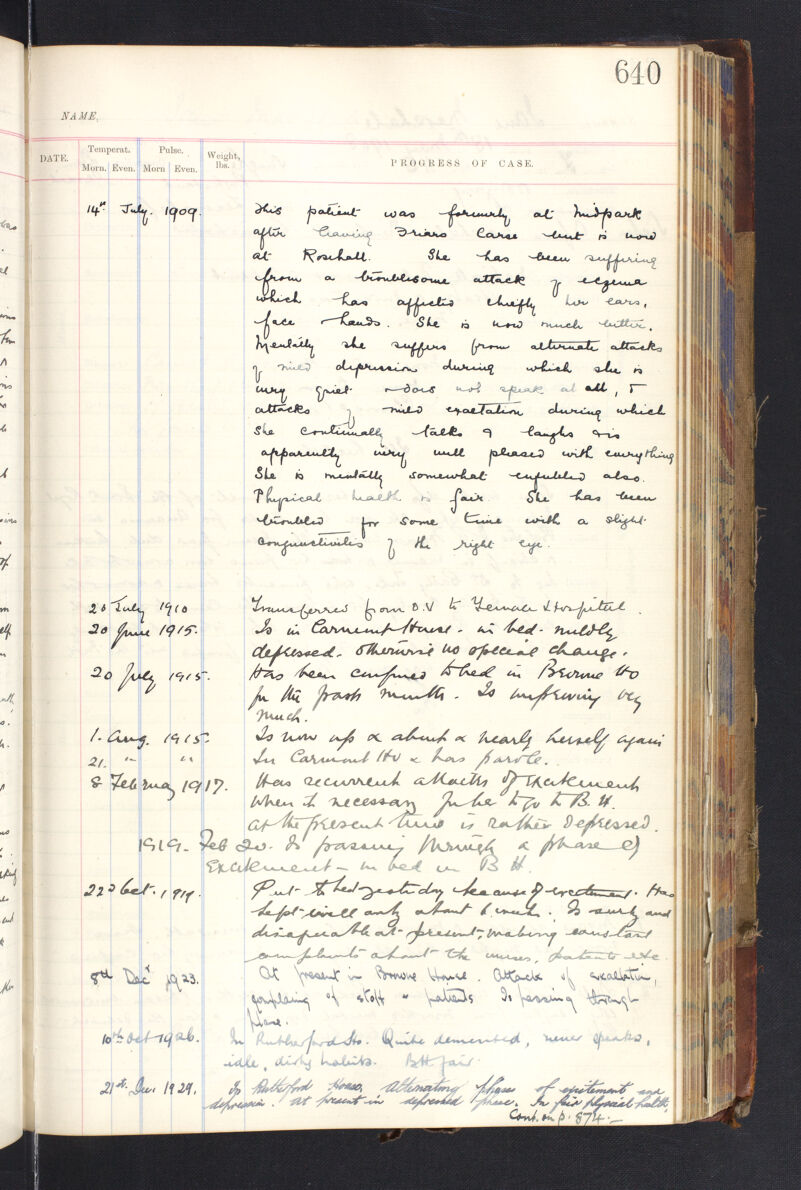 640
NAME.
DATE. Temperat. Pulse. Weight, lbs. PROGRESS OF CASE.
Morn. Even. Morn Even.
14th July. 1909. This patient was formerly at Midpark
after leaving Friars Carse but is now
at Rosehall. She has been suffering
from a troublesome attack of eczema
which has affected chiefly her ears,
face + hands. She is now much better.
Mentally she suffers from alternate attacks
of mild depression during which she is
very quiet + does not speak at all, +
attacks of mild exaltation during which
she continually talks & laughs & is
apparently very well pleased with everything
She is mentally somewhat enfeebled also.
Physical health is fair She has been
troubled for some time with a slight
conjunctivitis of the right eye.
20 July 1910 Transferred from D.V to Female Hospital.
20 June 1915. Is in Carmont House - in bed - mildly
depressed. otherwise no special change.
20 July 1915. Has been confined to bed in Browne Ho
for the past month. Is improving very
much.
1. Aug. 1915. Is now up & about & nearly herself again
21. " " In Carmont Ho & has parole.
8 February 1917. Has recurrent attacks of excitement
when it necessary for her to go to B.H.
At the present time is rather depressed.
1919 - Feb 20. Is passing through a phase of
Excitement - in bed in B H.
22d Oct. 1919. Put to bed yesterday because of excitement. Has
kept well only about 6 weeks. Is surly and
disagreeable at present, making constant
complaints about the nurses, patients etc.
8th Decr 1923. At present in Browne House. Attacks of exaltation,
complains of staff & patients Is passing through
phase.
10th Oct 1926. In Rutherford Ho. Quite demented, never speaks,
idle, dirty habits. BH fair.
21st Dec. 1929. In Rutherford House. Alternating phases of excitement and
depression. At present in depressed phase. In fair physical health.
Cont. on p. 874.